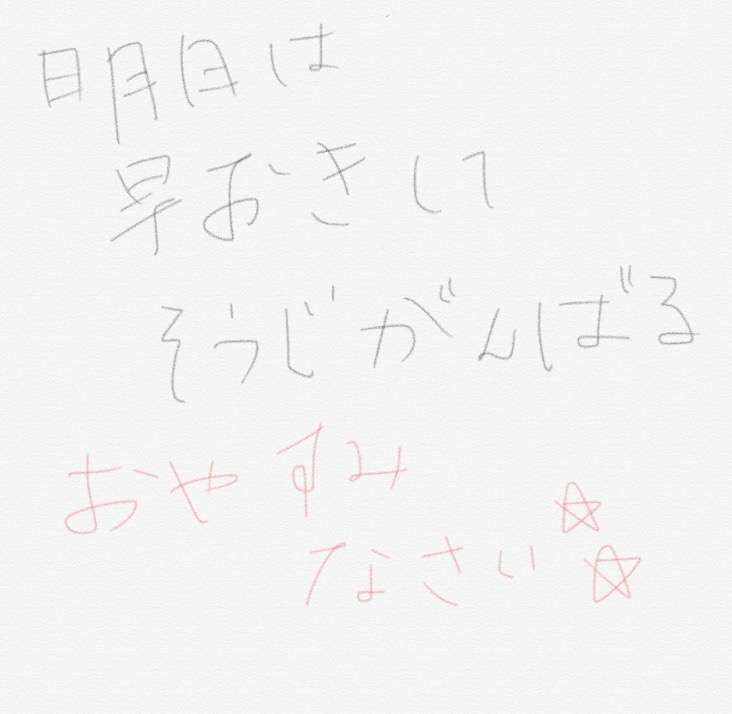 明日は
早おきして
そうじがんばる
おやすみ
なさい☆
☆